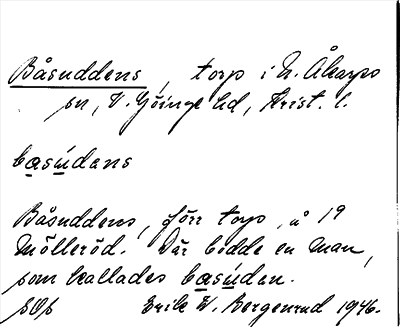 Båsuddens, torp i N. Åkarps
sn, V. Göinge hd, Krist. l.
basúdans
Båsuddens, förr torp, å 19
Mölleröd. Där bodde en man,
som kallades basúdan.
Erik W. Borgenrud 1946.